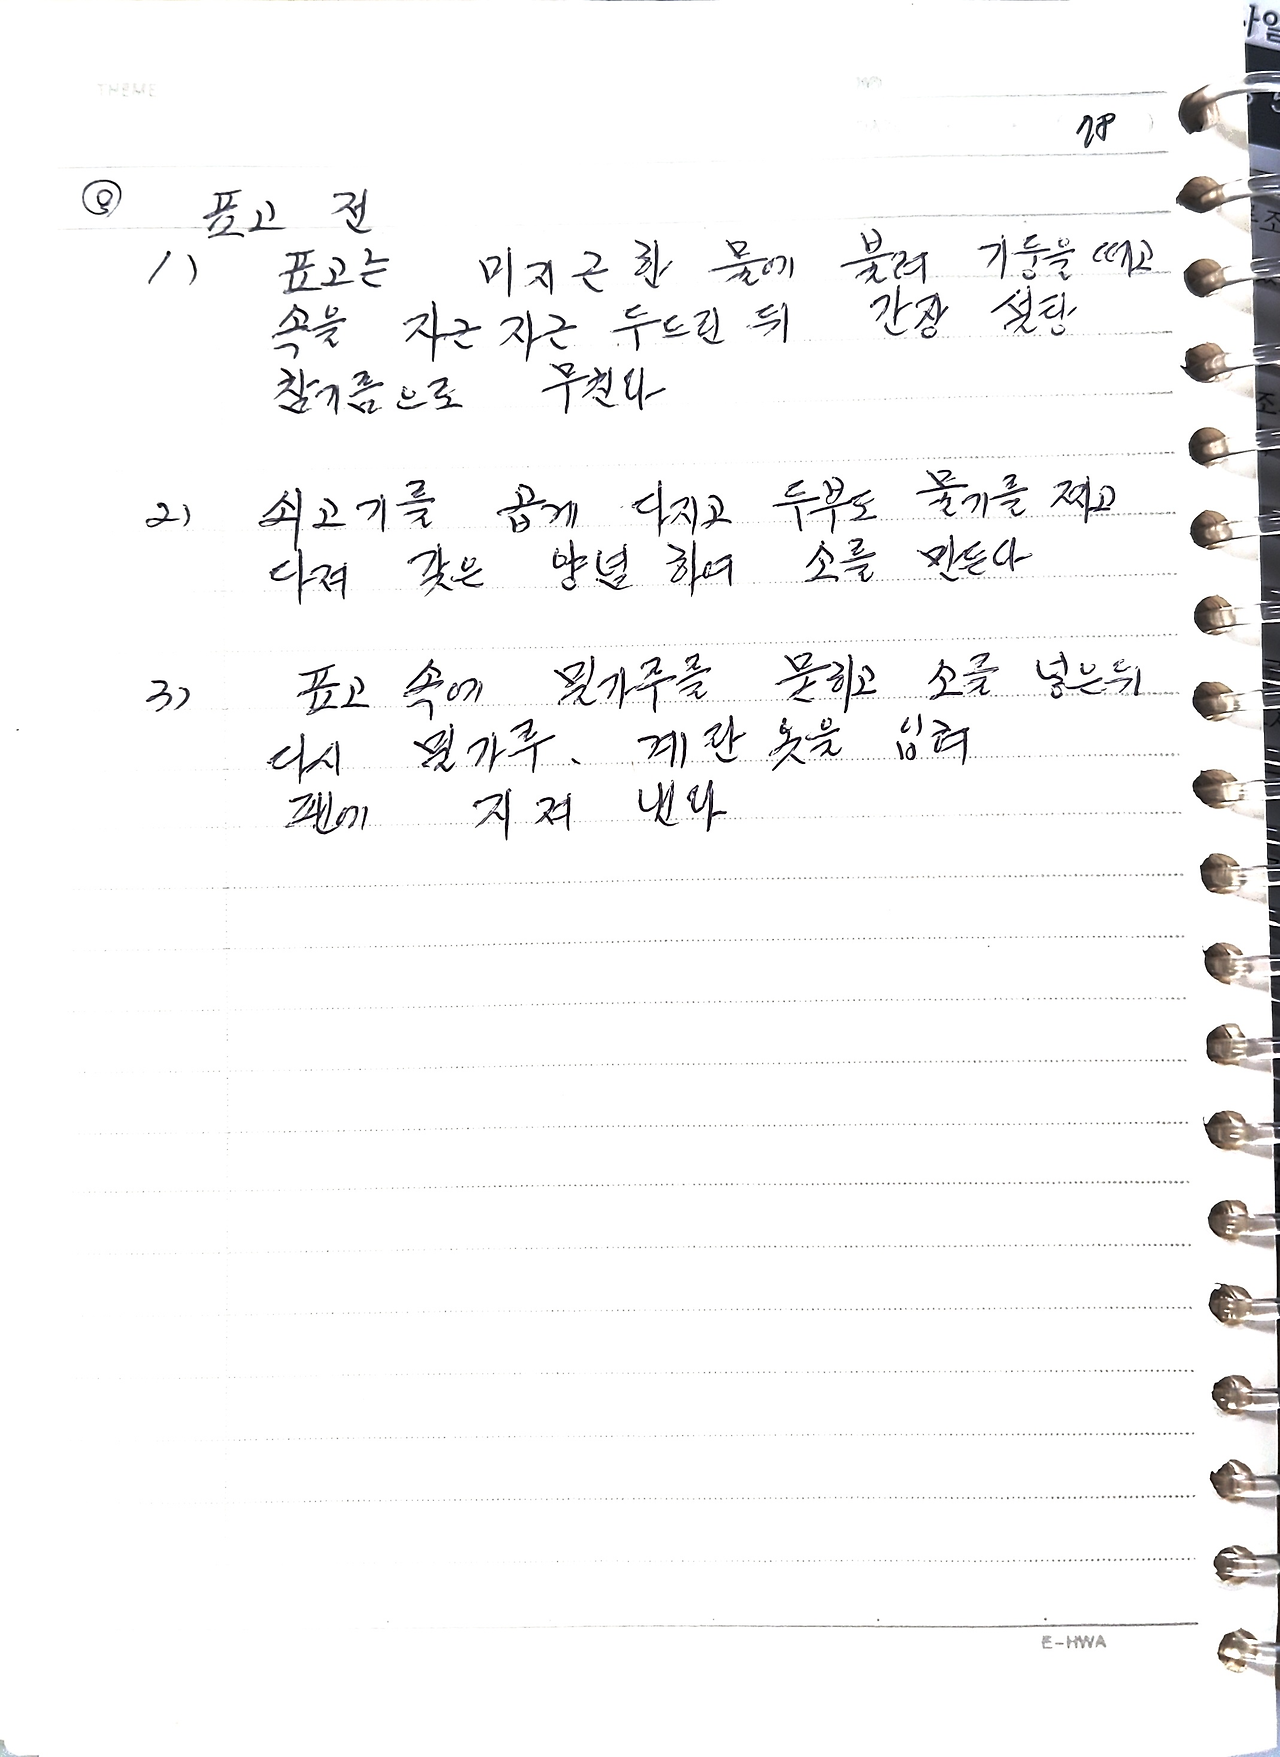 THEME
78
⑧ 표고 전
1) 표고는 미지근한 물에 불려 기둥을 떼고
속을 자근자근 두드린 뒤 간장 설탕
참기름으로 무친다
2) 쇠고기를 곱게 다지고 두부도 물기를 짜고
다져 갖은 양념 하여 소를 만든다
3) 표고 속에 밀가루를 묻히고 소를 넣은뒤
다시 밀가루、 계란 옷을 입혀
팬에 지져 낸다
E-HWA